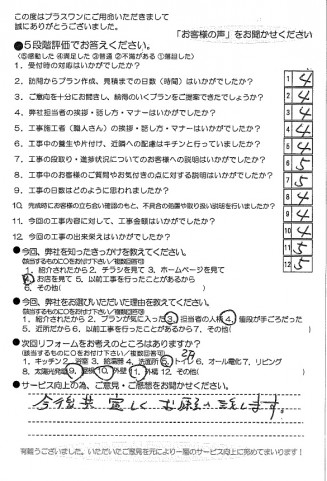 この度はプラスワンにご用命いただきまして
誠にありがとうございました。
「お客様の声」をお聞かせください
●5段階評価でお答えください。
(⑤感動した ④満足した ③普通 ②不満がある ①落胆した)
1. 受付時の対応はいかがでしたか?
2. 訪問からプラン作成、見積までの日数(時間)はいかがでしたか? 1 4
3. ご意向を十分にお聞きし、納得のいくプランをご提案できたでしょうか? 2 4
4. 弊社担当者の挨拶・話し方・マナーはいかがでしたか? 3 4
5. 工事施工者(職人さん)の挨拶・話し方・マナーはいかがでしたか? 4 4
6. 工事中の養生や片付け、近隣への配慮はキチンと行っていましたか? 5 4
7. 工事の段取り・進捗状況についてのお客様への説明はいかがでしたか? 6 5
8. 工事中のお客様のご質問やお気付きの点に対する説明はいかがでしたか? 7 5
9. 工事の日数はどのように思われましたか? 8 4
10. 完成時にお客様の立ち会い確認のもと、不具合の処置や取り扱い説明を行いましたか? 9 4
11. 今回の工事内容に対して、工事金額はいかがでしたか? 10 4
12. 今回の工事の出来栄えはいかがでしたか? 11 5
12 5
●今回、弊社を知ったきっかけを教えてください。
(該当するものに○をお付け下さい/複数回答可)
1. 紹介されたから 2. チラシを見て 3. ホームページを見て
4. お店を見て 5. 以前工事を行ったことがあるから
6. その他( )
●今回、弊社をお選びいただいた理由を教えてください。
(該当するものに○をお付け下さい/複数回答可)
1. 紹介されたから 2. プランが気に入った 3. 担当者の人柄 4. 値段が手ごろだった
5. 近所だから 6. 以前工事を行ったことがあるから 7. その他( )
●次回リフォームをお考えのところはありますか?
(該当するものに○をお付け下さい/複数回答可)
1. キッチン 2. 浴室 3. 給湯器 4. 洗面所 5. トイレ 6. オール電化 7. リビング
8. 太陽光発電 9. 屋根 10. 外壁 11. 外構 12. その他( )
●サービス向上の為、ご意見・ご感想をお聞かせください。
今後共宜しくお願い致します。
有難うございました。いただいたご意見を元により一層のサービス向上に努めてまいります!